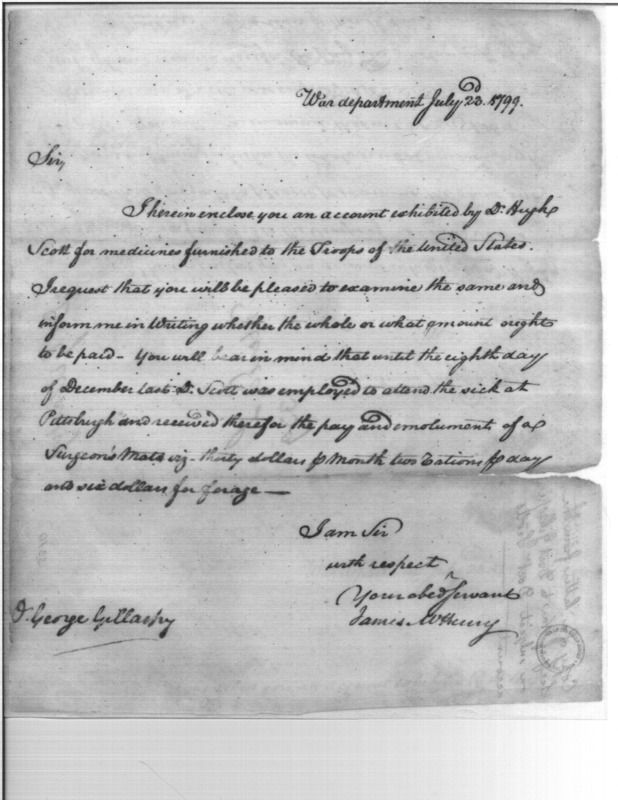 War department July 23d. 1799.
Sir,
I herein enclose you an account exhibited by Dr. Hugh
Scott for medicines furnished to the Troops of the United States.
I request that you will be pleased to examine the same and
inform me in Writing whether the whole or what amount ought
to be paid - You will bear in mind that until the eighth day
of December last Dr. Scott was employed to attend the sick at
Pittsburgh and received therefor the pay and emolument of a
Surgeon's Mate viz. thirty dollars ⅌ Month two rations ⅌ day
and six dollars for forage —
I am Sir
with respect
Your obedt. Servant
James McHenry
Dr. George Gillaspy